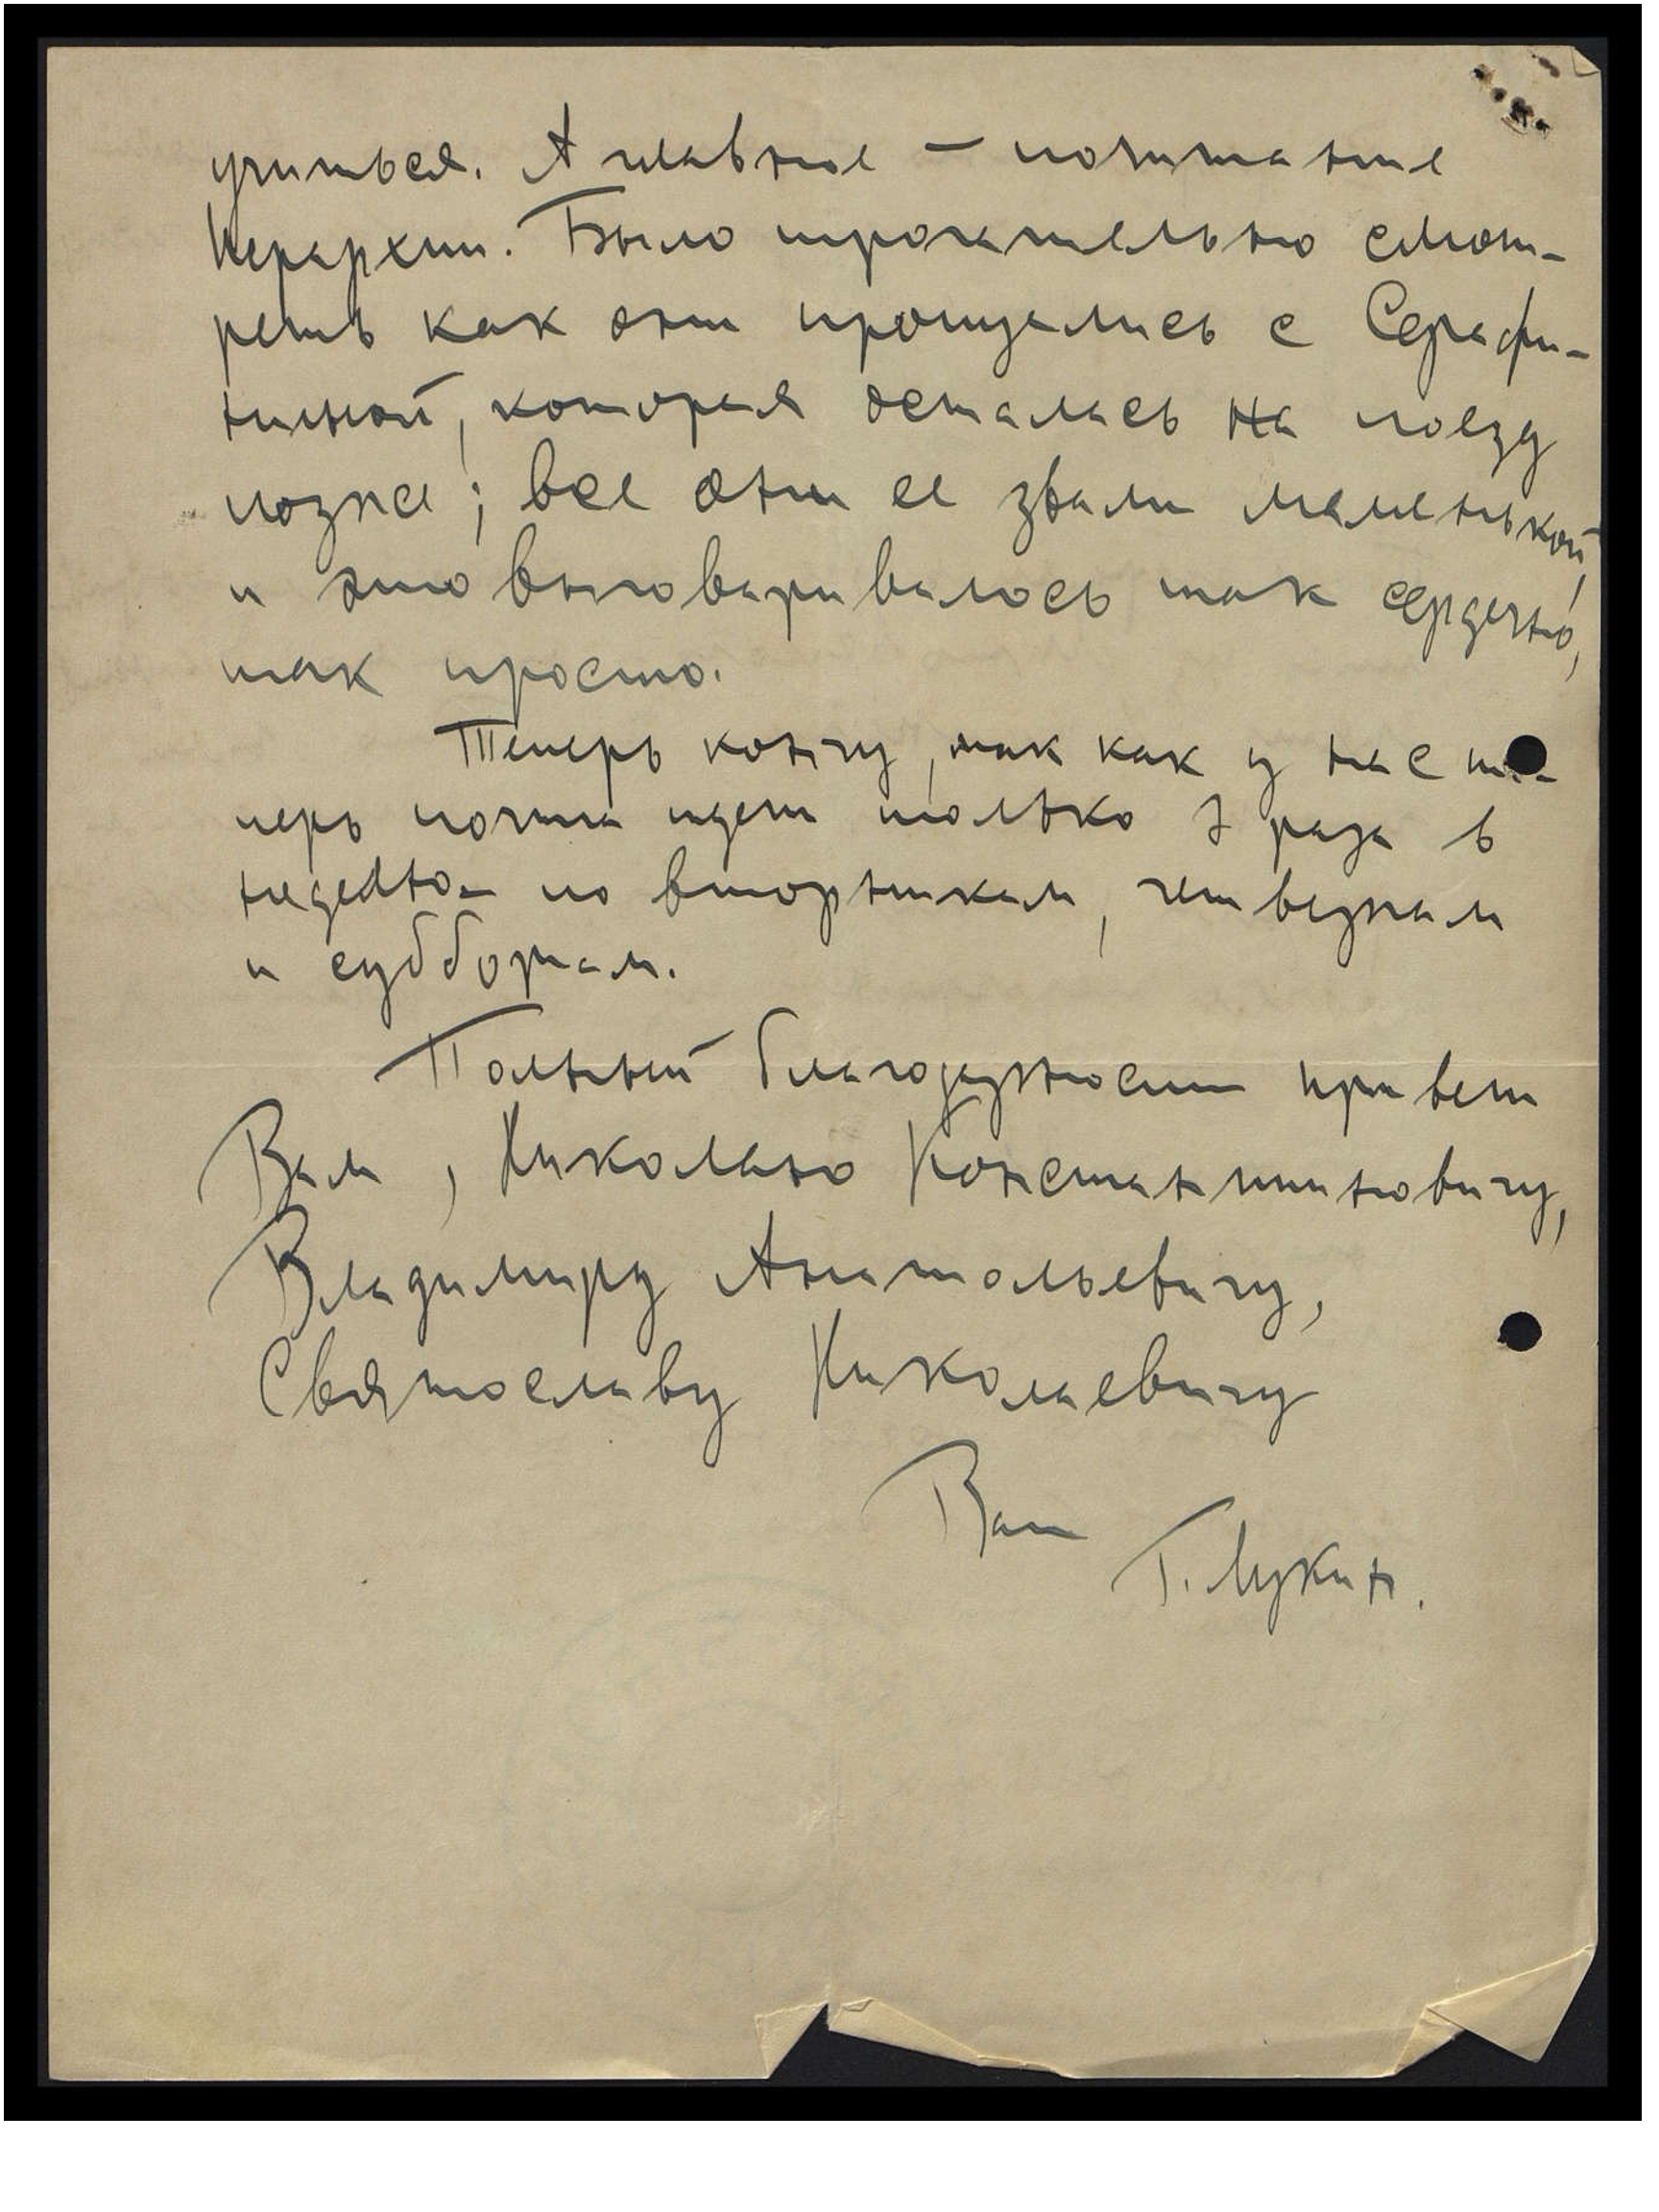 учиться. А главное — почитание
Иерархии. Было трогательно смот-
реть как они прощались с Серафи-
ниной, которая осталась на поезд
позже; все они ее звали маменькой,
и это выговаривалось так сердечно,
так просто.
Теперь кончу, так как у нас те-
перь почта идет только 3 раза в
неделю — по вторникам, четвергам
и субботам.
Полный благодарности привет
Вам, Николаю Константиновичу,
Владимиру Анатольевичу,
Святославу Николаевичу
Ваш
Г. Лукин.